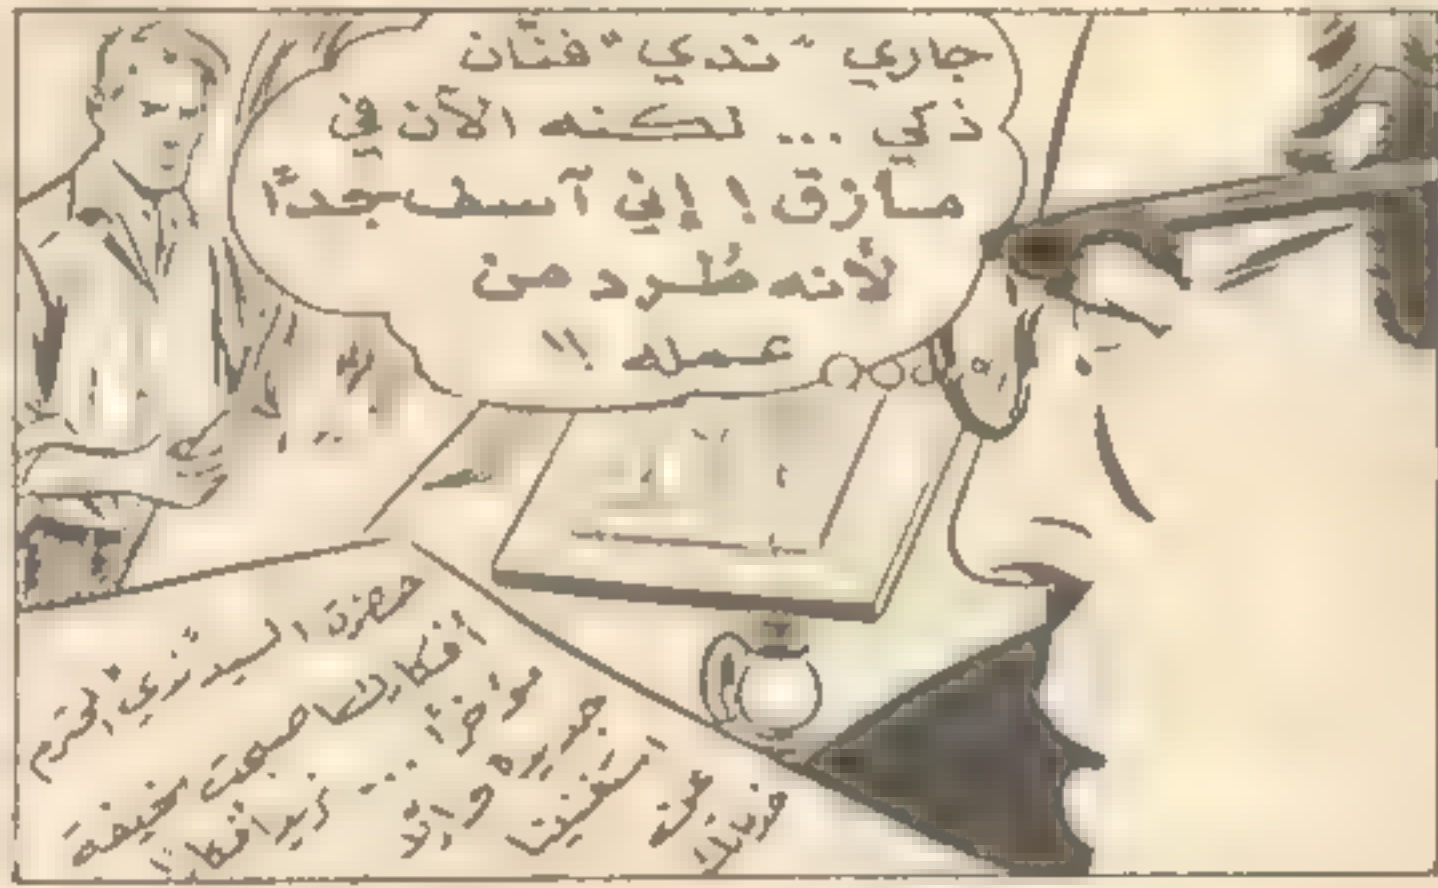 جاري "ندي" فنّان
ذكي ... لكنه الآن في
مأزق ! إني آسف جدًا
لأنه طُرد من
عمله !!
حضرة السيد ندي المحترم
أفكارك اصبحت سخيفة
مؤخرًا ... نريد افكارًا
جديدة وإلّا
استغنينا
عن
خدماتك